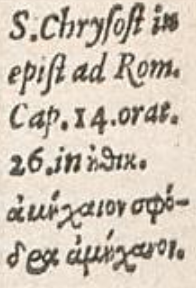 S. Chryſoſt in
epiſt ad Rom.
Cap. 14. orat.
26. in ἠθικ.
ἀμήχανον σφό-
δρα ἀμήχανον.